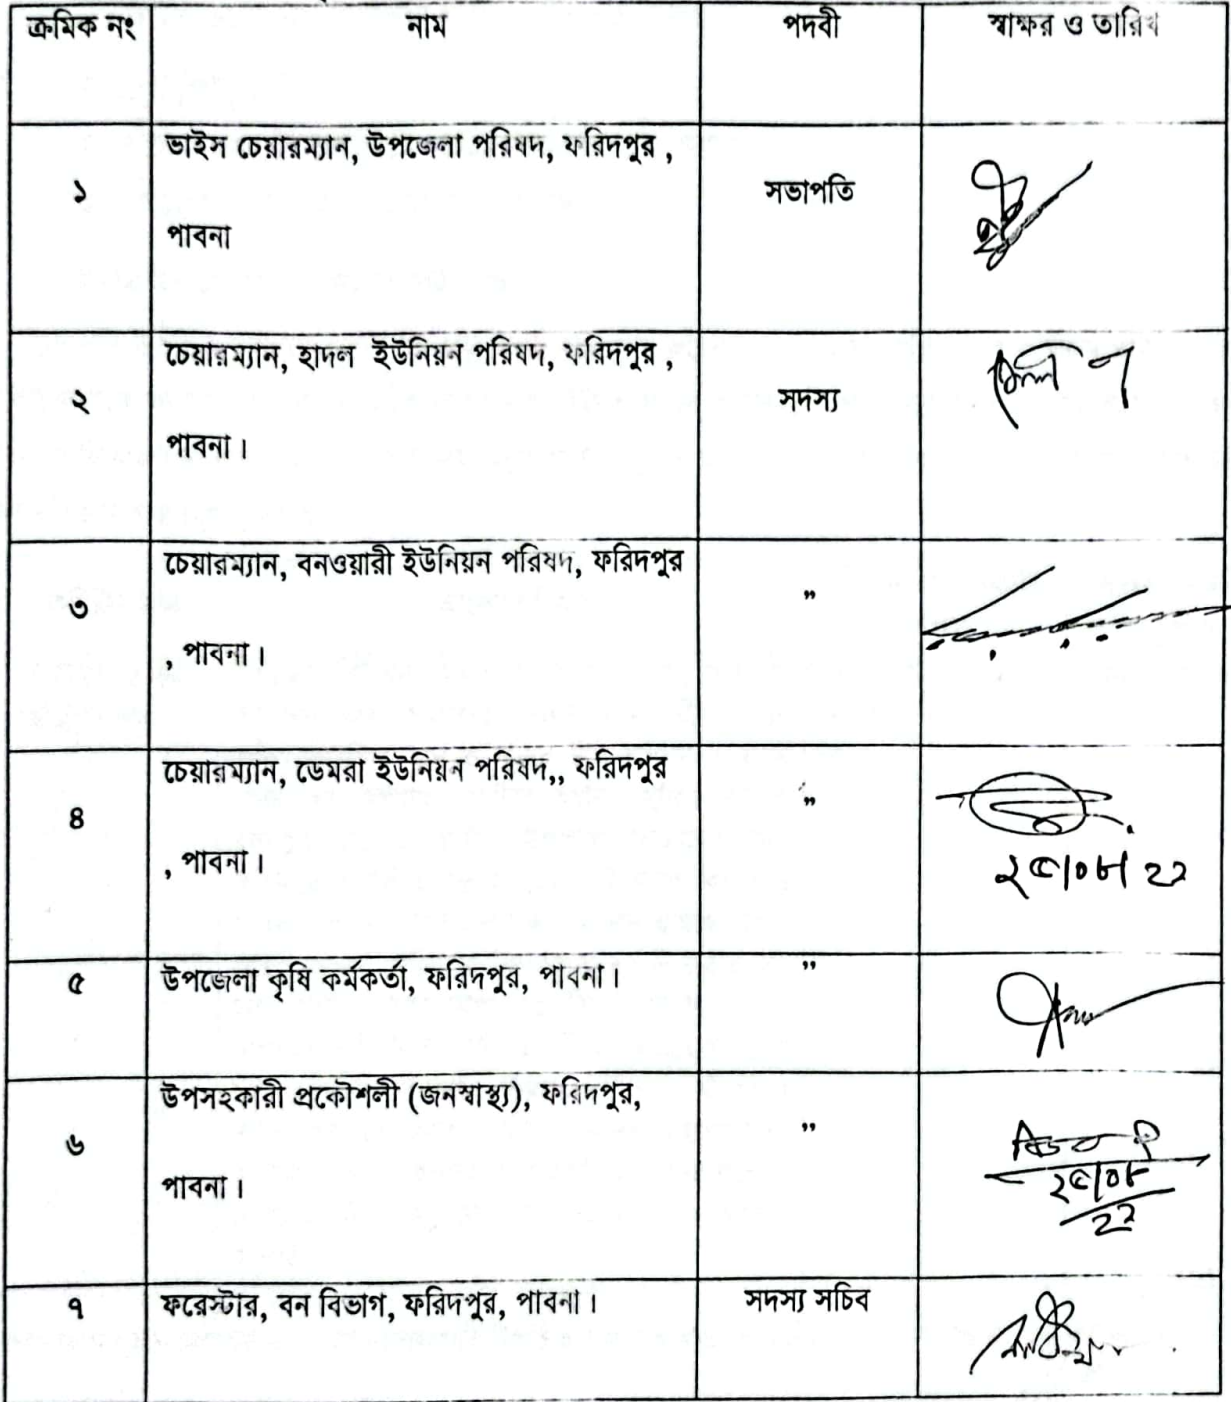 ক্রমিক নং নাম পদবী স্বাক্ষর ও তারিখ
ভাইস চেয়ারম্যান, উপজেলা পরিষদ, ফরিদপুর ,
১ সভাপতি
পাবনা
চেয়ারম্যান, হাদল ইউনিয়ন পরিষদ, ফরিদপুর ,
২ সদস্য
পাবনা।
চেয়ারম্যান, বনওয়ারী ইউনিয়ন পরিষদ, ফরিদপুর
৩ ”
, পাবনা।
চেয়ারম্যান, ডেমরা ইউনিয়ন পরিষদ,, ফরিদপুর
৪ ”
, পাবনা। ২৫/০৮/২২
৫ উপজেলা কৃষি কর্মকর্তা, ফরিদপুর, পাবনা। ”
উপসহকারী প্রকৌশলী (জনস্বাস্থ্য), ফরিদপুর,
৬ ”
পাবনা। ২৫/০৮
২২
৭ ফরেস্টার, বন বিভাগ, ফরিদপুর, পাবনা। সদস্য সচিব